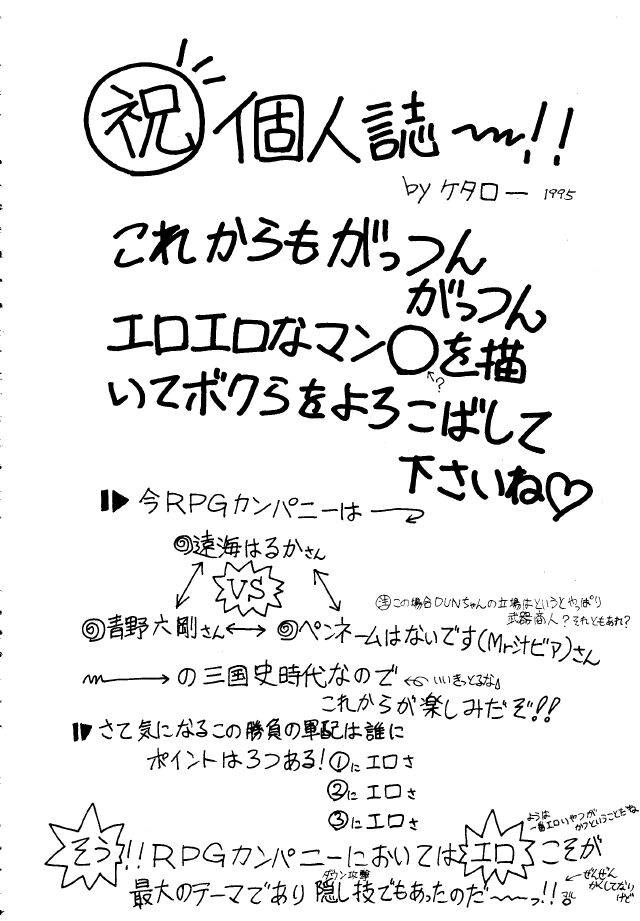 祝 個人誌〜!!
by ケタロー 1995
これからもがっつん
がっつん
エロエロなマン◯を描
←?
いてボクらをよろこばして
下さいね♡
今RPGカンパニーは
遠海はるかさん
VS
㊟この場合DUNちゃんの立場はというとやっぱり
武器商人?それともあれ?
青野六剛さん ↔ ペンネームはないです(Mr汁ビア)さん
→の三国史時代なので ←いいきっとるな
これからが楽しみだぞ!!
さて気になるこの勝負の軍配は誰に
ポイントは3つある!①にエロさ
②にエロさ
③にエロさ
ようは
一番エロいやつが
かつということだね
そう!!RPGカンパニーにおいてはエロこそが
ダウン攻撃
最大のテーマであり隠し技でもあったのだ〜っ!!
←ぜんぜん
かくしてない
けど